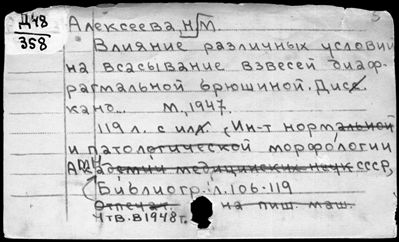 Д48
358
Алексеева, Н М
Влияние различных условий
на всасывание взвесей диаф-
рагмальной брюшиной. Дисс.
канд... М, 1947.
119 л. с илл. (Ин-т нормальной
и патологической морфологии
АМН Академии медицинских наук СССР,
Библиогр: л. 106-119
Отпечат. на пиш. маш.
Утв. в 1948г.